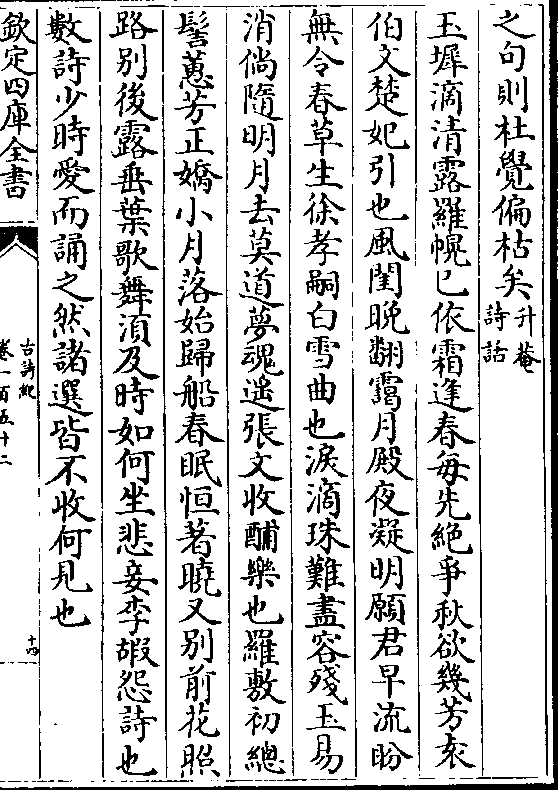 之句則杜覺偏枯矣升菴詩話
玉墀滴清露羅幌已依霜逢春每先絕爭秋欲幾芳袁
伯文楚妃引也風閨晚翻靄月殿夜凝明願君早流盼
無令春草生徐孝嗣白雪曲也淚滴珠難盡容殘玉易
消倘隨明月去莫道夢魂遥張文收酺樂也羅敷初總
髻蕙芳正嬌小月落始歸船春眠恒著曉又别前花照
路别後露垂葉歌舞湏及時如何坐悲妾李嘏怨詩也
數詩少時愛而誦之然諸選皆不收何見也
欽定四庫全書
古詩紀
卷一百五十二
十四